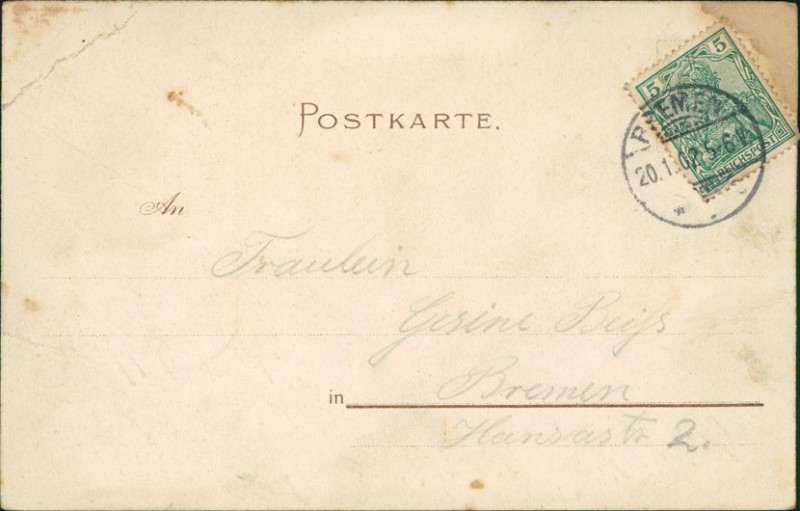 POSTKARTE.
5 5
REICHSPOST
BREMEN
20.1.02 5-6N
An
Fräulein
Gesine
in Bremen
Hansastr 2.